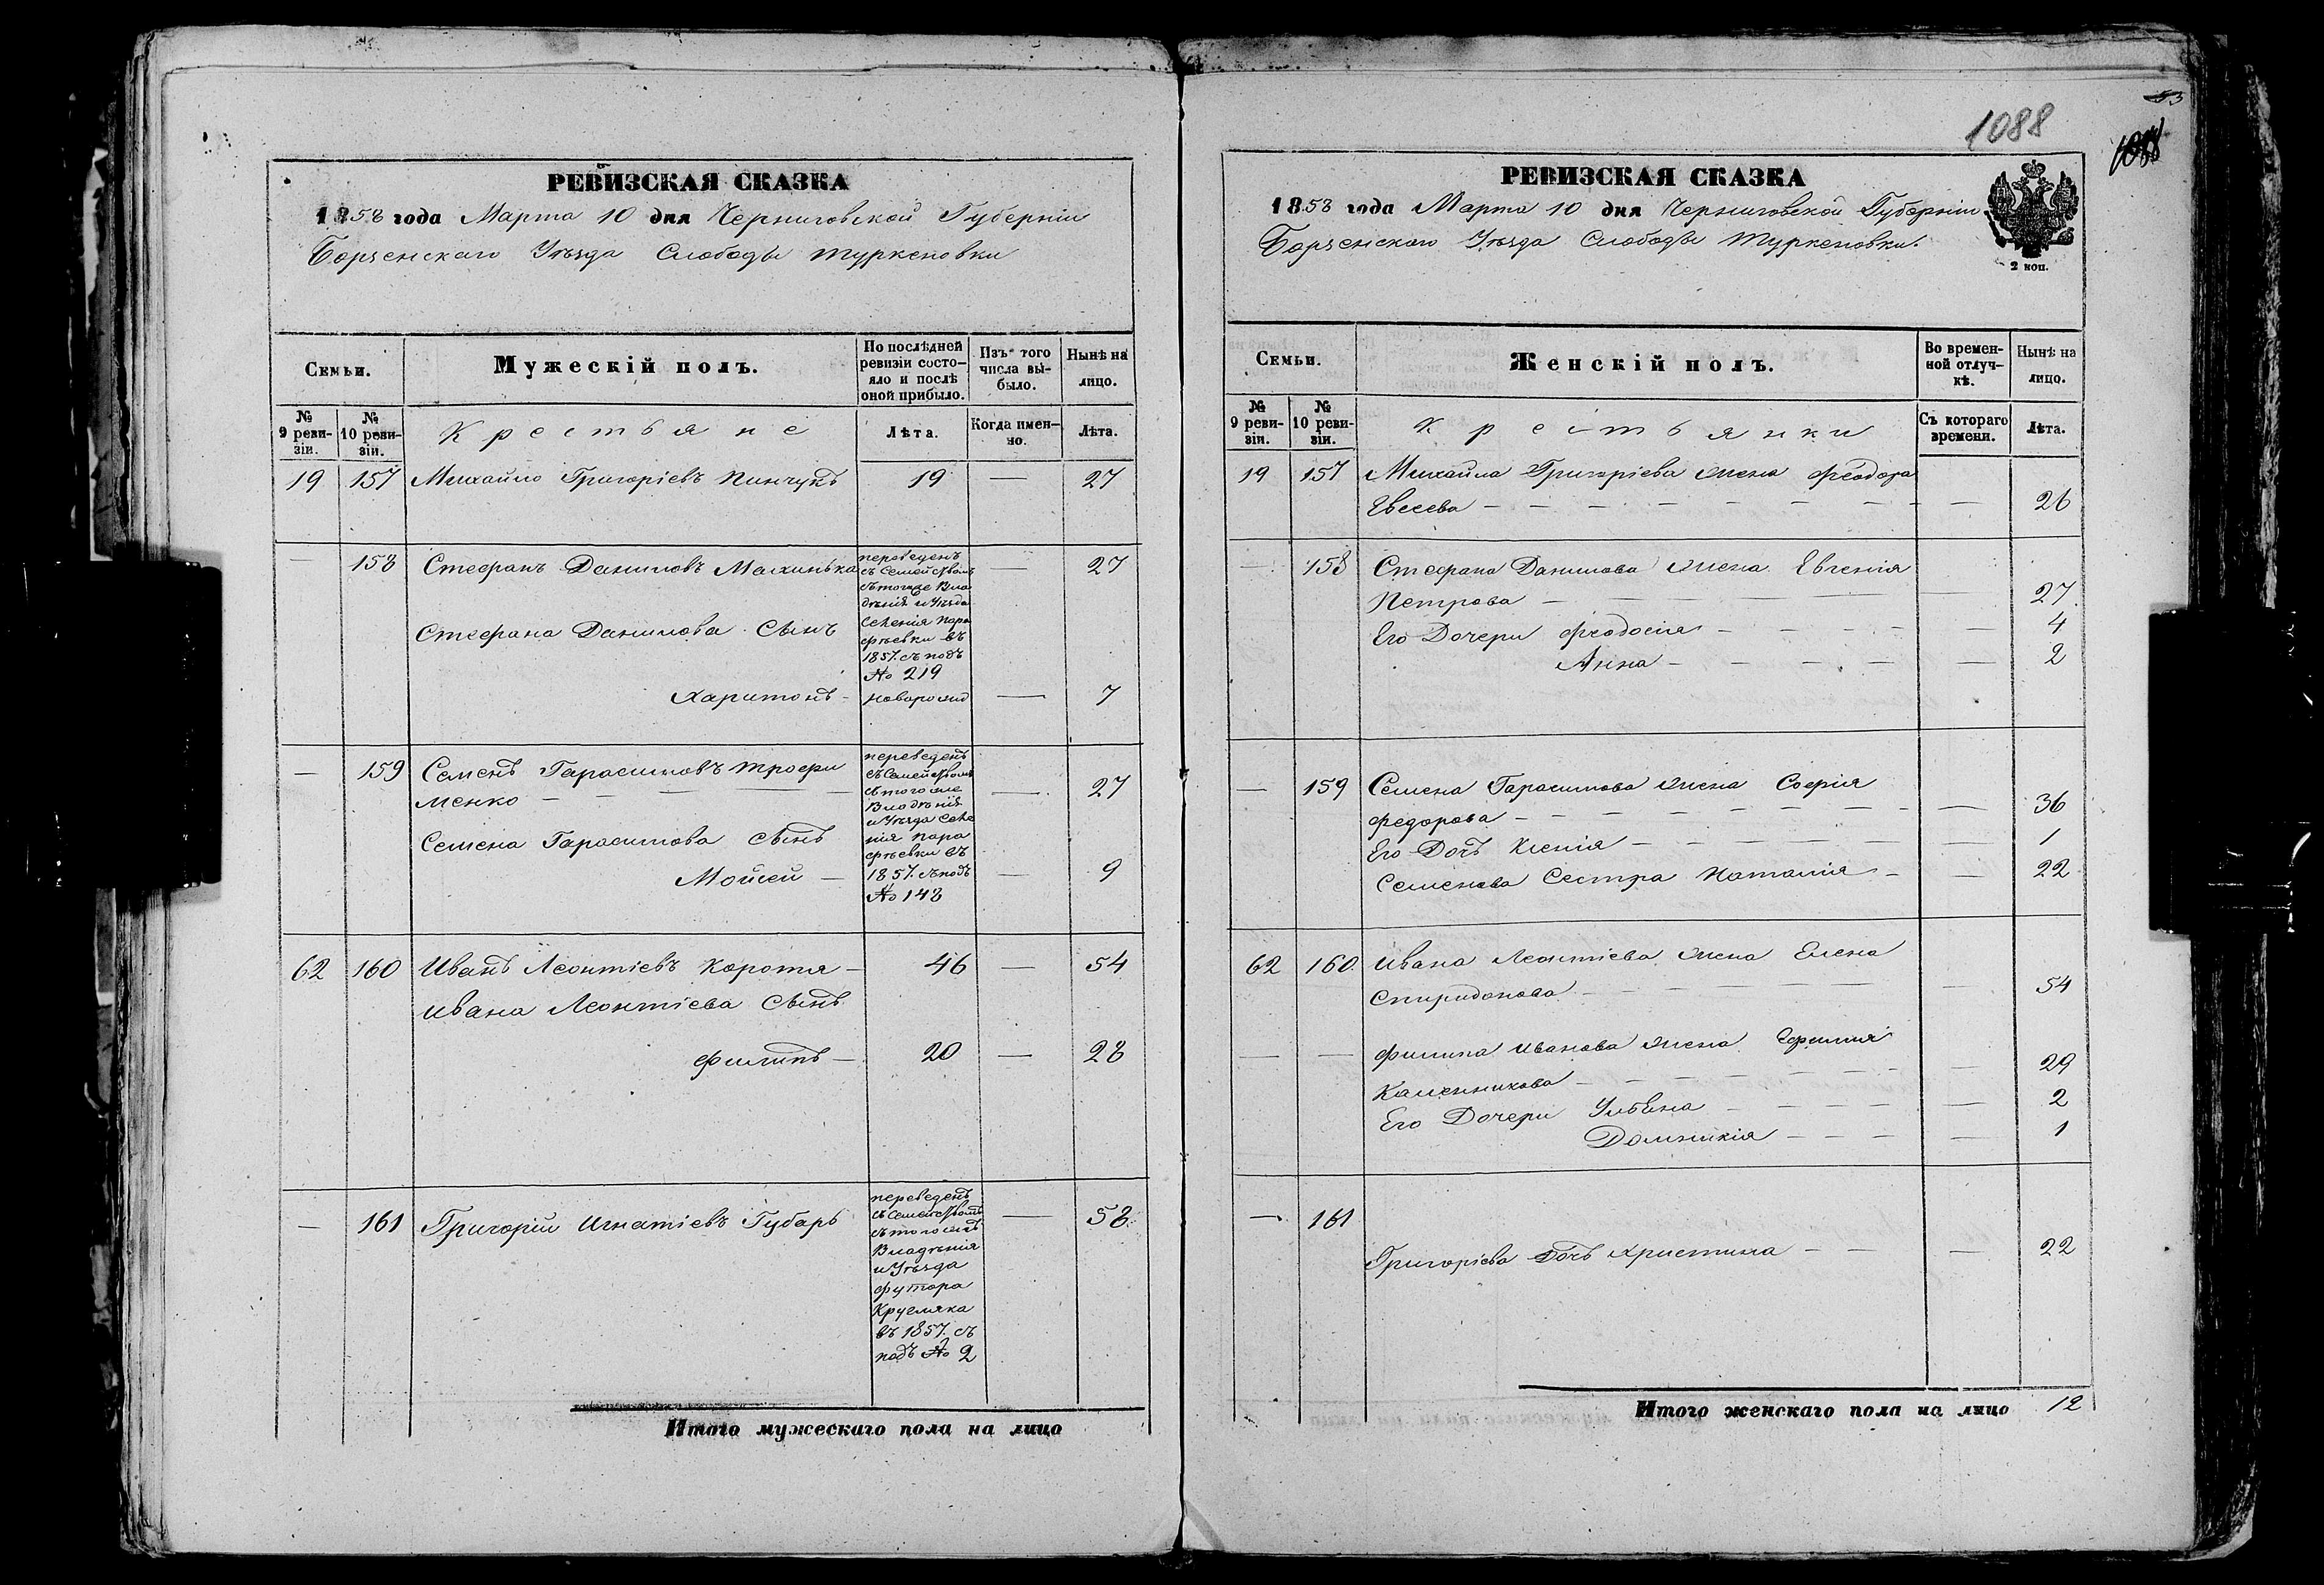 РЕВИЗСКАЯ СКАЗКА
1858 года Марта 10 дня Черниговской Губерніи
Борзенскаго Уѣзда Слободы Туркеновки
Семьи.
Мужескій полъ.
По послѣдней ревизіи состо-
яло и послѣ
оной прибыло.
Изъ того
числа вы-
было.
Нынѣ на
лицо.
№
9 реви-
зіи.
№
10 реви-
зіи.
Крестьяне
Лѣта.
Когда имен-
но.
Лѣта.
19 157 Михайло Григоріевъ Пинчукъ 19 — 27
— 158 Стефанъ Даниловъ Малинька — 27
переведенъ
съ Семействомъ
съ тогоже Вла
дѣнія и Уѣзда
Селенія Пара
фѣевки въ
1857. съ подъ
№ 219
Стефана Данилова Сынъ
Харитонъ — новорожд — 7
— 159 Семенъ Гарасимовъ Трофи
менко — — — — 27
переведенъ
съ Семействомъ
съ того же
Владѣнія
и Уѣзда Селе
нія Пара
фѣевки въ
1857. съ подъ
№ 148
Семена Гарасимова Сынъ
Мойсей — — 9
62 160 Иванъ Леонтіевъ Коротя — 46 — 54
Ивана Леонтіева Сынъ
Филипъ — 20 — 28
— 161 Григорій Игнатіевъ Губарь — 58
переведенъ
съ Семействомъ
съ того жъ
Владѣнія
и Уѣзда
футора
Кругляка
въ 1857. съ
подъ № 2
Итого мужескаго пола на лицо
83
1088
1088
РЕВИЗСКАЯ СКАЗКА
1858 года Марта 10 дня Черниговской Губерніи
Борзенскаго Уѣзда Слободы Туркеновки.
2 коп.
Семьи.
Женскій полъ.
Во времен-
ной отлуч-
кѣ.
Нынѣ на
лицо.
№
9 реви-
зіи.
№
10 реви-
зіи.
Крестьянки
Съ котораго
времени.
Лѣта.
19 157 Михайла Григоріева жена Феодора
Евсеева — — — — — — — 26
— 158 Стефана Данилова жена Евгенія
Петрова — — — — — 27
Его Дочери Феодосія — — — — — 4
Анна — — — — — — 2
— 159 Семена Гарасимова жена Софія
Федорова — — — — — — — 36
Его Дочь Ксенія — — — — — — 1
Семенова Сестра Наталія — — 22
62 160 Ивана Леонтіева жена Елена
Спиридонова — — — — — — 54
— — Филипа Иванова жена Ефимія
Каленникова — — — — — — 29
Его Дочери Ульяна — — — — — 2
Домникія — — — — 1
— 161
Григоріева Дочь Христина — — — 22
Итого женскаго пола на лицо 12